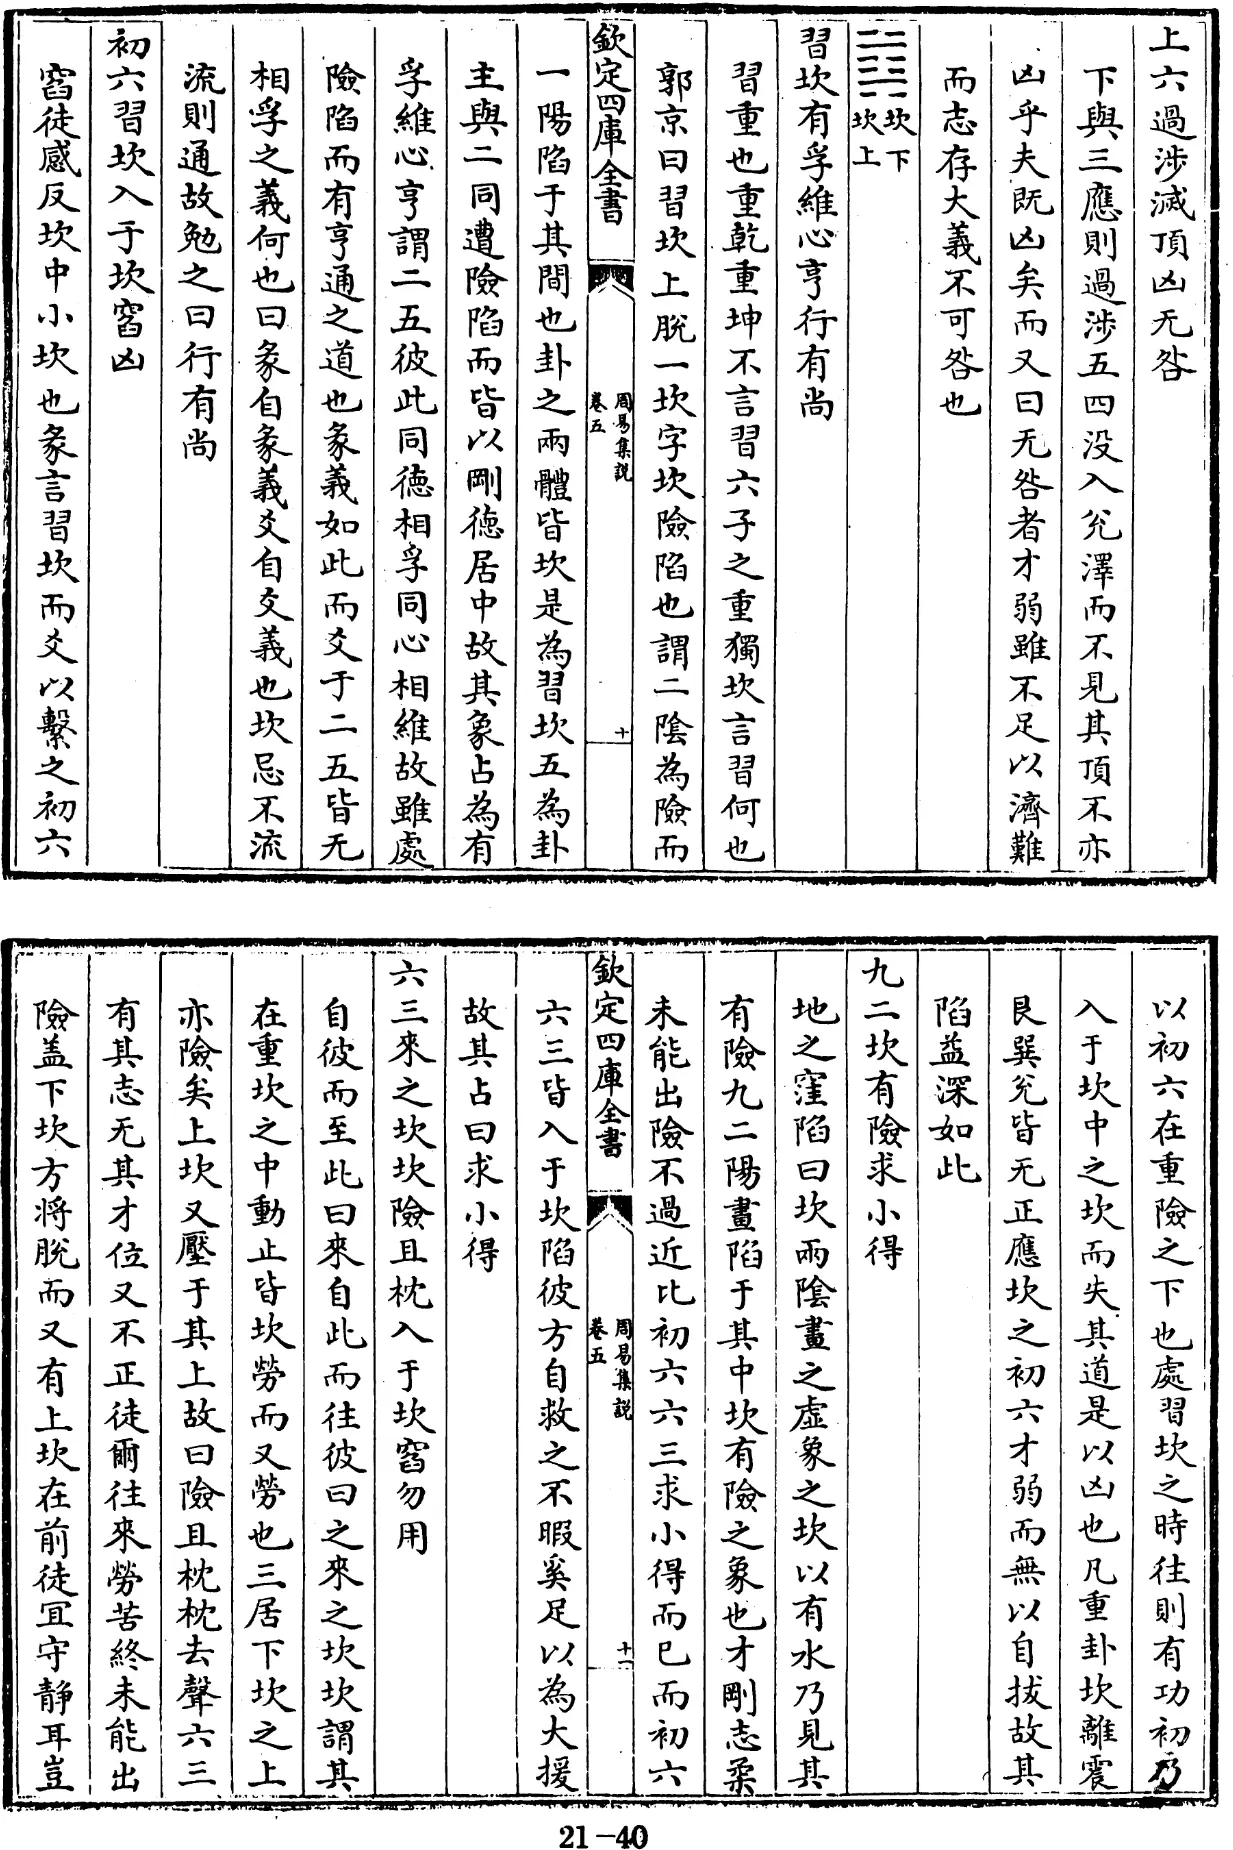 上六過涉滅頂凶无咎
下與三應則過涉五四没入兊澤而不見其頂不亦
凶乎夫既凶矣而又曰无咎者才弱雖不足以濟難
而志存大義不可咎也
坎下
坎上
習坎有孚維心亨行有尚
習重也重乾重坤不言習六子之重獨坎言習何也
郭京曰習坎上脱一坎字坎險陷也謂二陰為險而
欽定四庫全書
周易集説
卷五
十
一陽陷于其間也卦之兩體皆坎是為習坎五為卦
主與二同遭險陷而皆以剛德居中故其象占為有
孚維心亨謂二五彼此同德相孚同心相維故雖處
險陷而有亨通之道也彖義如此而爻于二五皆无
相孚之義何也曰彖自彖義爻自爻義也坎忌不流
流則通故勉之曰行有尚
初六習坎入于坎窞凶
窞徒感反坎中小坎也彖言習坎而爻以繫之初六
以初六在重險之下也處習坎之時往則有功初乃
入于坎中之坎而失其道是以凶也凡重卦坎離震
艮巽兊皆无正應坎之初六才弱而無以自拔故其
陷益深如此
九二坎有險求小得
地之窪陷曰坎兩陰畫之虛象之坎以有水乃見其
有險九二陽畫陷于其中坎有險之象也才剛志柔
未能出險不過近比初六六三求小得而已而初六
欽定四庫全書
周易集説
卷五
十一
六三皆入于坎陷彼方自救之不暇奚足以為大援
故其占曰求小得
六三來之坎坎險且枕入于坎窞勿用
自彼而至此曰來自此而往彼曰之來之坎坎謂其
在重坎之中動止皆坎勞而又勞也三居下坎之上
亦險矣上坎又壓于其上故曰險且枕枕去聲六三
有其志无其才位又不正徒爾往來勞苦終未能出
險盖下坎方將脱而又有上坎在前徒冝守静耳豈
21-40